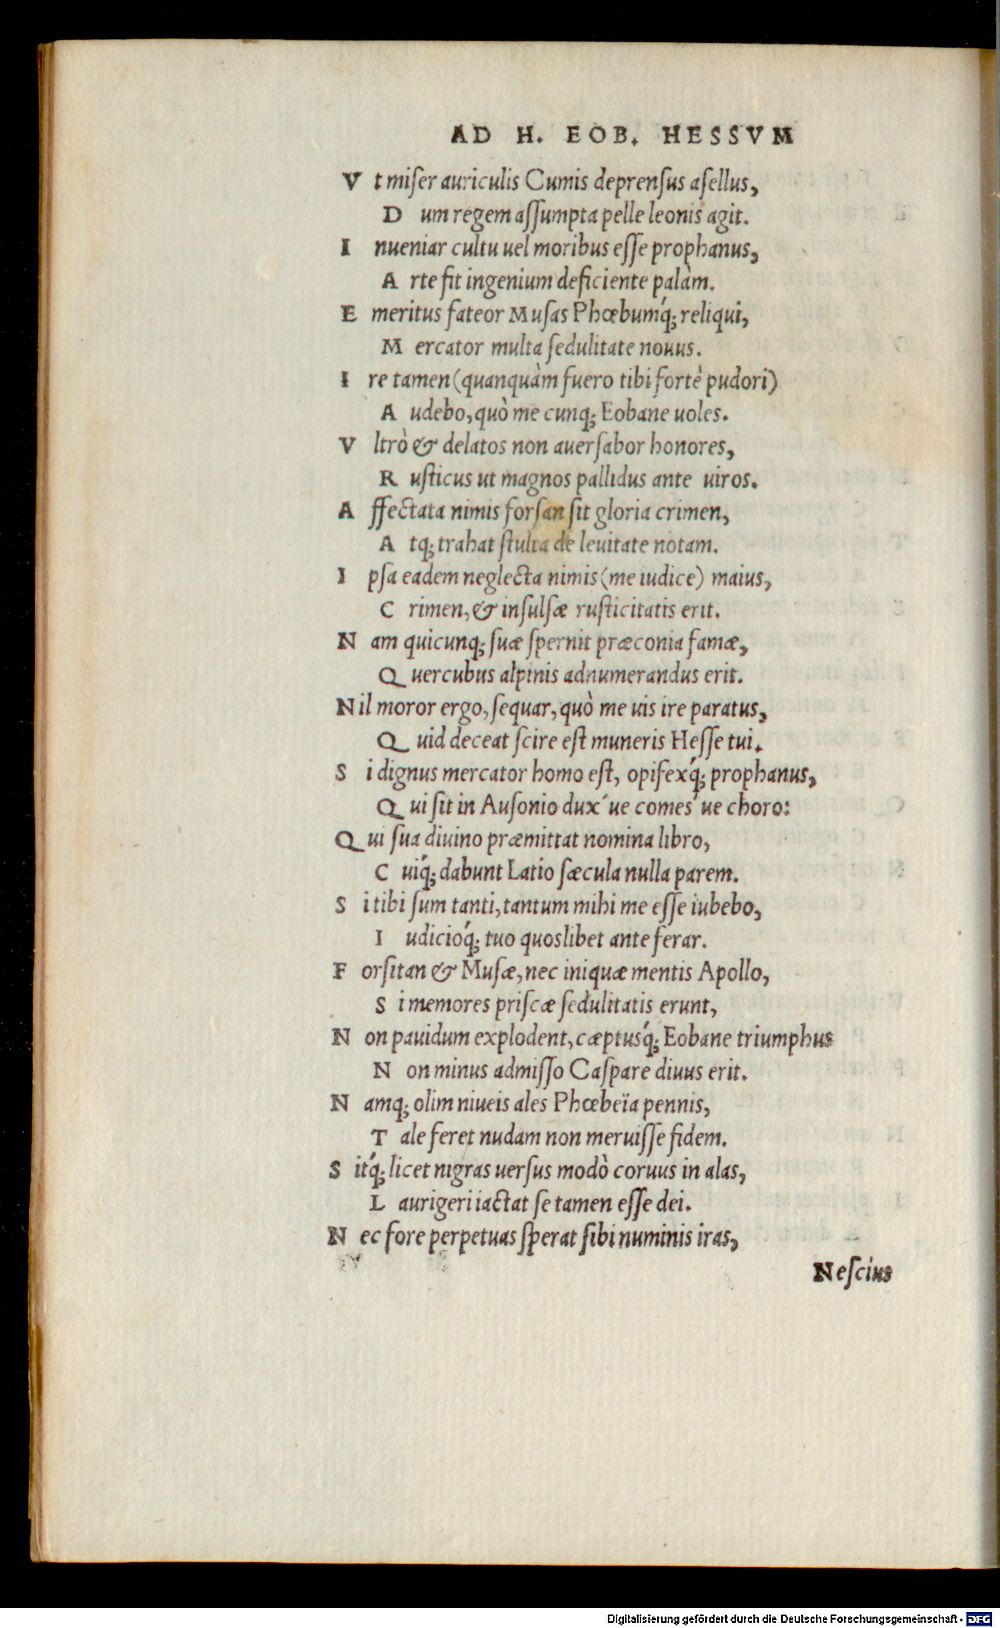 AD H. EOB. HESSVM
V t miſer auriculis Cumis deprenſus aſellus,
D um regem aſſumpta pelle leonis agit.
I nueniar cultu uel moribus eſſe prophanus,
A rte fit ingenium deficiente palàm.
E meritus fateor Muſas Phœbumq́; reliqui,
M ercator multa ſedulitate nouus.
I re tamen (quanquàm fuero tibi fortè pudori)
A udebo, quò me cunq; Eobane uoles.
V ltrò & delatos non auerſabor honores,
R uſticus ut magnos pallidus ante uiros.
A ffectata nimis forſan ſit gloria crimen,
A tq; trahat ſtulta de leuitate notam.
I pſa eadem neglecta nimis (me iudice) maius,
C rimen, & inſulſæ ruſticitatis erit.
N am quicunq; ſuæ ſpernit præconia famæ,
Q uercubus alpinis adnumerandus erit.
N il moror ergo, ſequar, quò me uis ire paratus,
Q uid deceat ſcire eſt muneris Heſſe tui.
S i dignus mercator homo eſt, opifexq́; prophanus,
Q ui ſit in Auſonio dux´ue comes´ue choro:
Q ui ſua diuino præmittat nomina libro,
C uiq́; dabunt Latio ſæcula nulla parem.
S i tibi ſum tanti, tantum mihi me eſſe iubebo,
I udicioq́; tuo quoslibet ante ferar.
F orſitan & Muſæ, nec iniquæ mentis Apollo,
S i memores priſcæ ſedulitatis erunt,
N on pauidum explodent, cæptusq́; Eobane triumphus
N on minus admiſſo Caſpare diuus erit.
N amq; olim niueis ales Phœbeïa pennis,
T ale feret nudam non meruiſſe fidem.
S itq́; licet nigras uerſus modò coruus in alas,
L aurigeri iactat ſe tamen eſſe dei.
N ec fore perpetuas ſperat ſibi numinis iras,
Neſcius
Digitalisierung gefördert durch die Deutsche Forschungsgemeinschaft - DFG